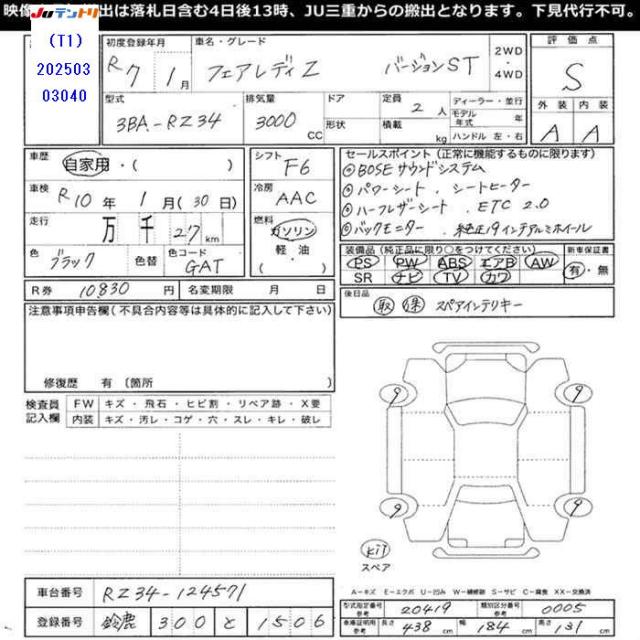 映像 出は落札日含む4日後13時、JU三重からの搬出となります。下見代行不可。
JUテントリ
(T1)
202503
03040
初度登録年月
R7 1月
車名・グレード
フェアレディZ バージョンST
2WD
・
4WD
評価点
S
外装 内装
A A
型式
3BA-RZ34
排気量
3000 CC
ドア
形状
定員 2人
積載 kg
ディーラー・並行
モデル年式 年
ハンドル 左・右
車歴
自家用・( )
車検
R10年1月(30日)
走行
万 千 27 km
色
ブラック
色替
色コード
GAT
シフト
F6
冷房
AAC
燃料
ガソリン
軽油
・( )
R券 10830円
名変期限 月 日
セールスポイント(正常に機能するものに限ります)
◎BOSEサウンドシステム
◎パワーシート、シートヒーター
◎ハーフレザーシート、ETC 2.0
◎バックモニター、純正19インチアルミホイール
装備品(純正品に限り○をつけてください)
PS PW ABS エアB AW
SR ナビ TV カワ
新車保証書
有・無
後日品
取 保 スペアインテリキー
注意事項申告欄(不具合内容等は具体的に記入して下さい)
修復歴 有〔箇所 〕
検査員記入欄
FW キズ・飛石・ヒビ割・リペア跡・X要
内装 キズ・汚レ・コゲ・穴・スレ・キレ・破レ
9 9
9 9
kit
スペア
A－キズ E－エクボ U－凹み W－補修跡 S－サビ C－腐食 XX－交換済
車台番号 RZ34-124571
登録番号 鈴鹿 300 と 1506
型式指定番号 参考 20419
類別区分番号 参考 0005
車庫証明用 参考 長さ 438 cm 幅 184 cm 高さ 131 cm